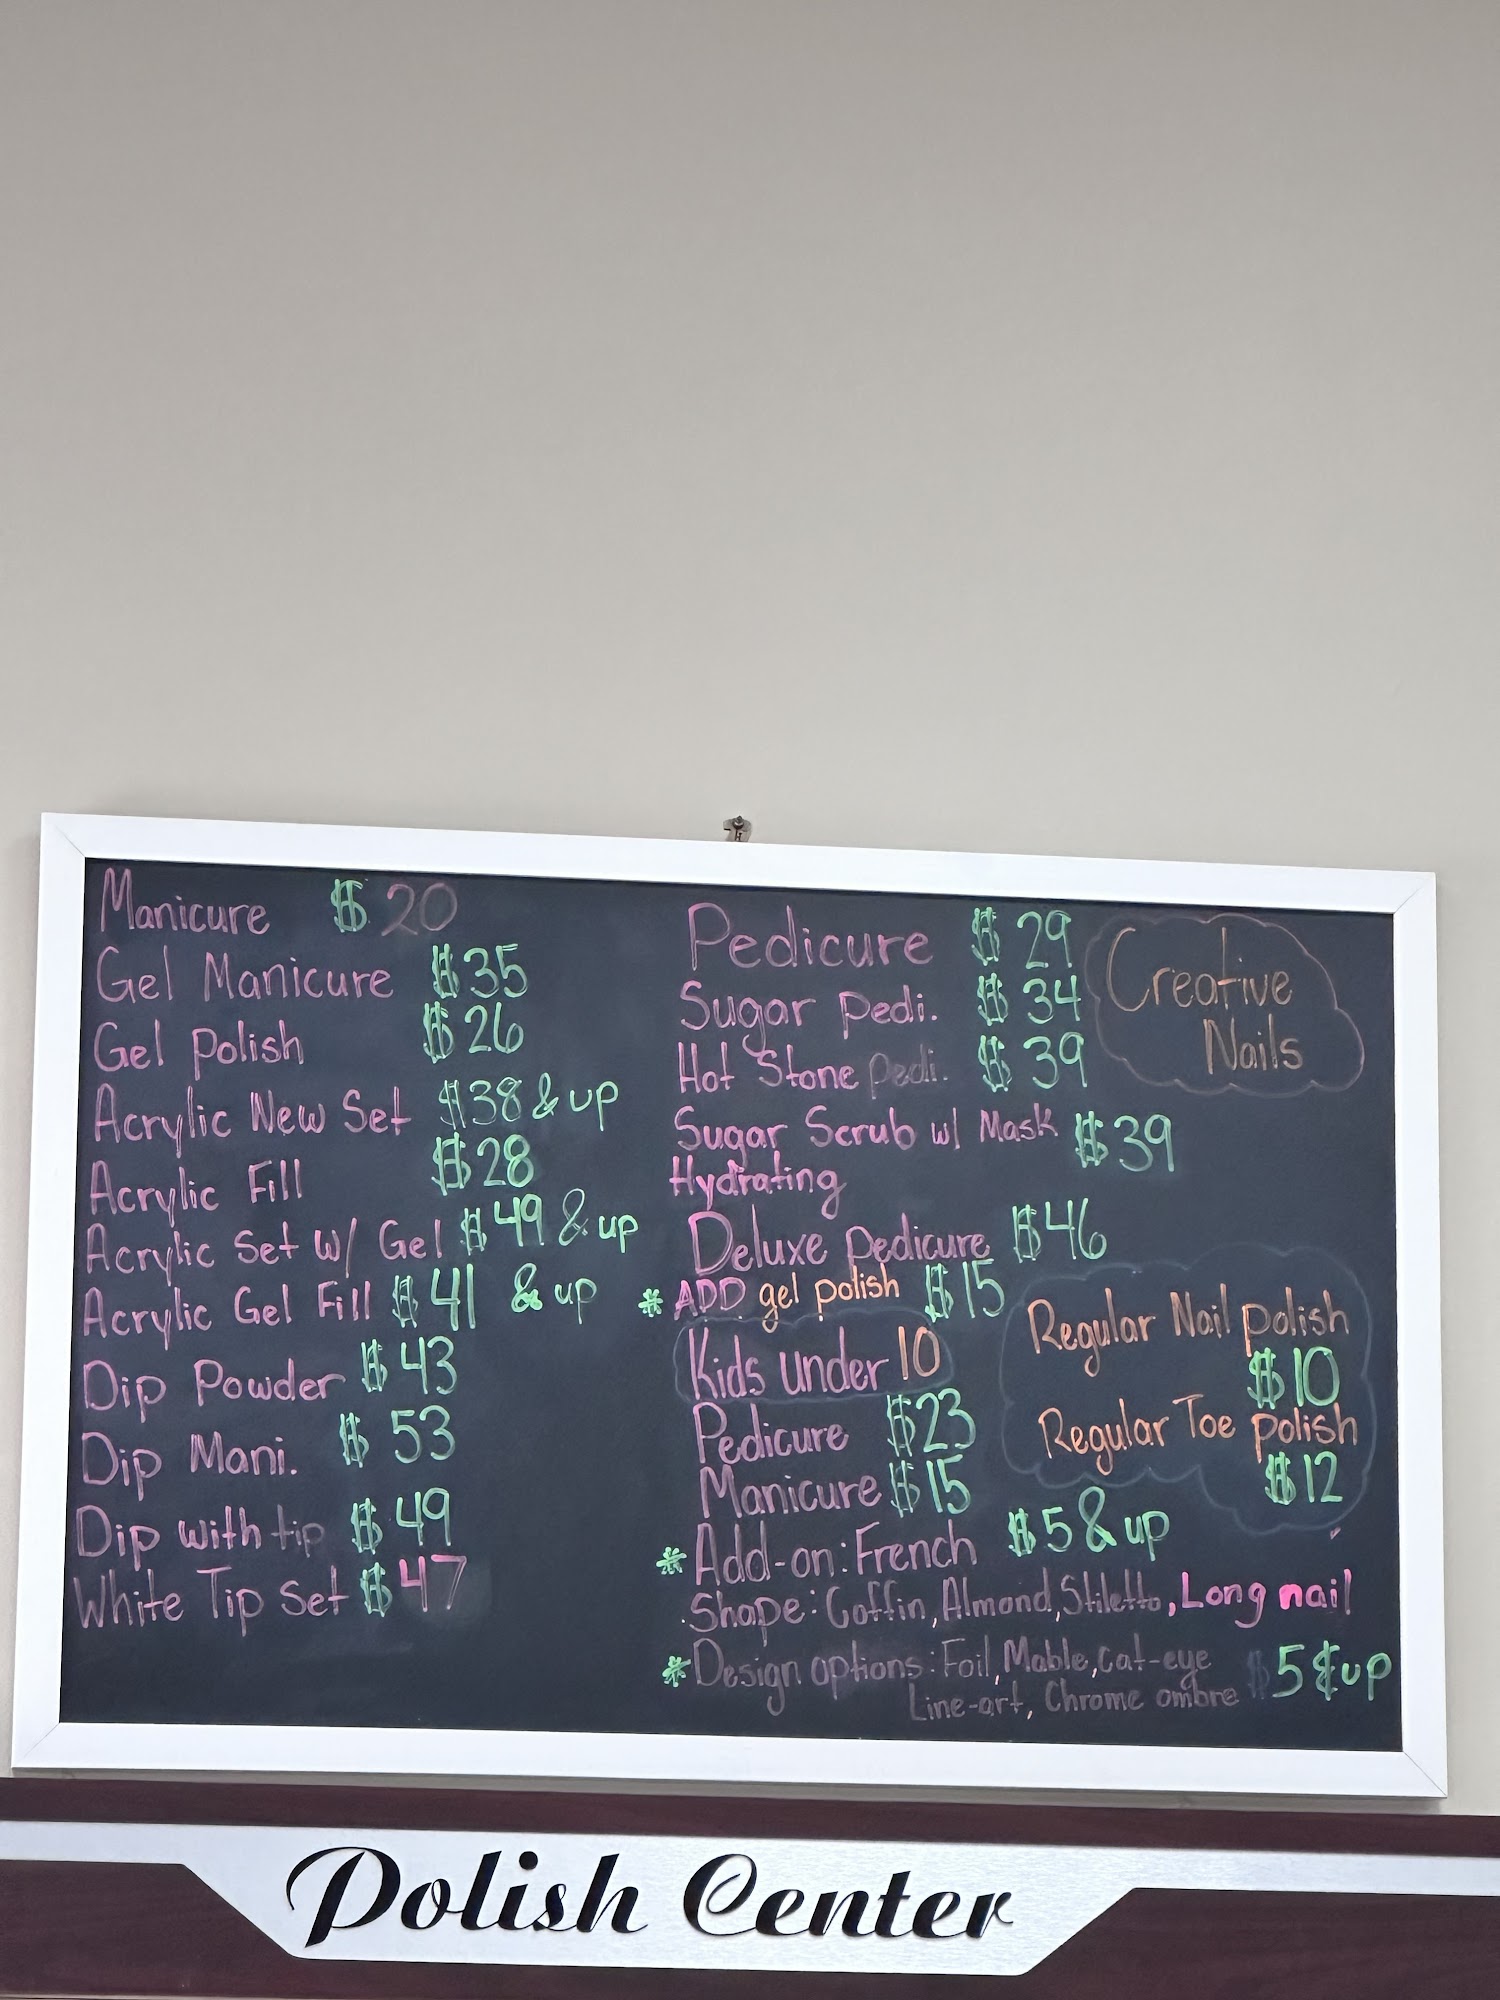 Manicure $ 20
Gel Manicure $35
Gel polish $26
Acrylic New Set $38 & up
Acrylic Fill $28
Acrylic Set w/ Gel $49 & up
Acrylic Gel Fill $41 & up
Dip Powder $43
Dip Mani. $53
Dip with tip $49
White Tip Set $47
Pedicure $29
Sugar pedi. $34
Hot Stone pedi. $39
Sugar Scrub w/ Mask $39
Hydrating
Deluxe pedicure $46
* ADD gel polish $15
Kids under 10
Pedicure $23
Manicure $15
* Add-on: French $5 & up
Shape: Coffin, Almond, Stiletto, Long nail
* Design options: Foil, Mable, cat-eye $5 & up
Line-art, Chrome ombre
Creative
Nails
Regular Nail polish
$10
Regular Toe polish
$12
Polish Center